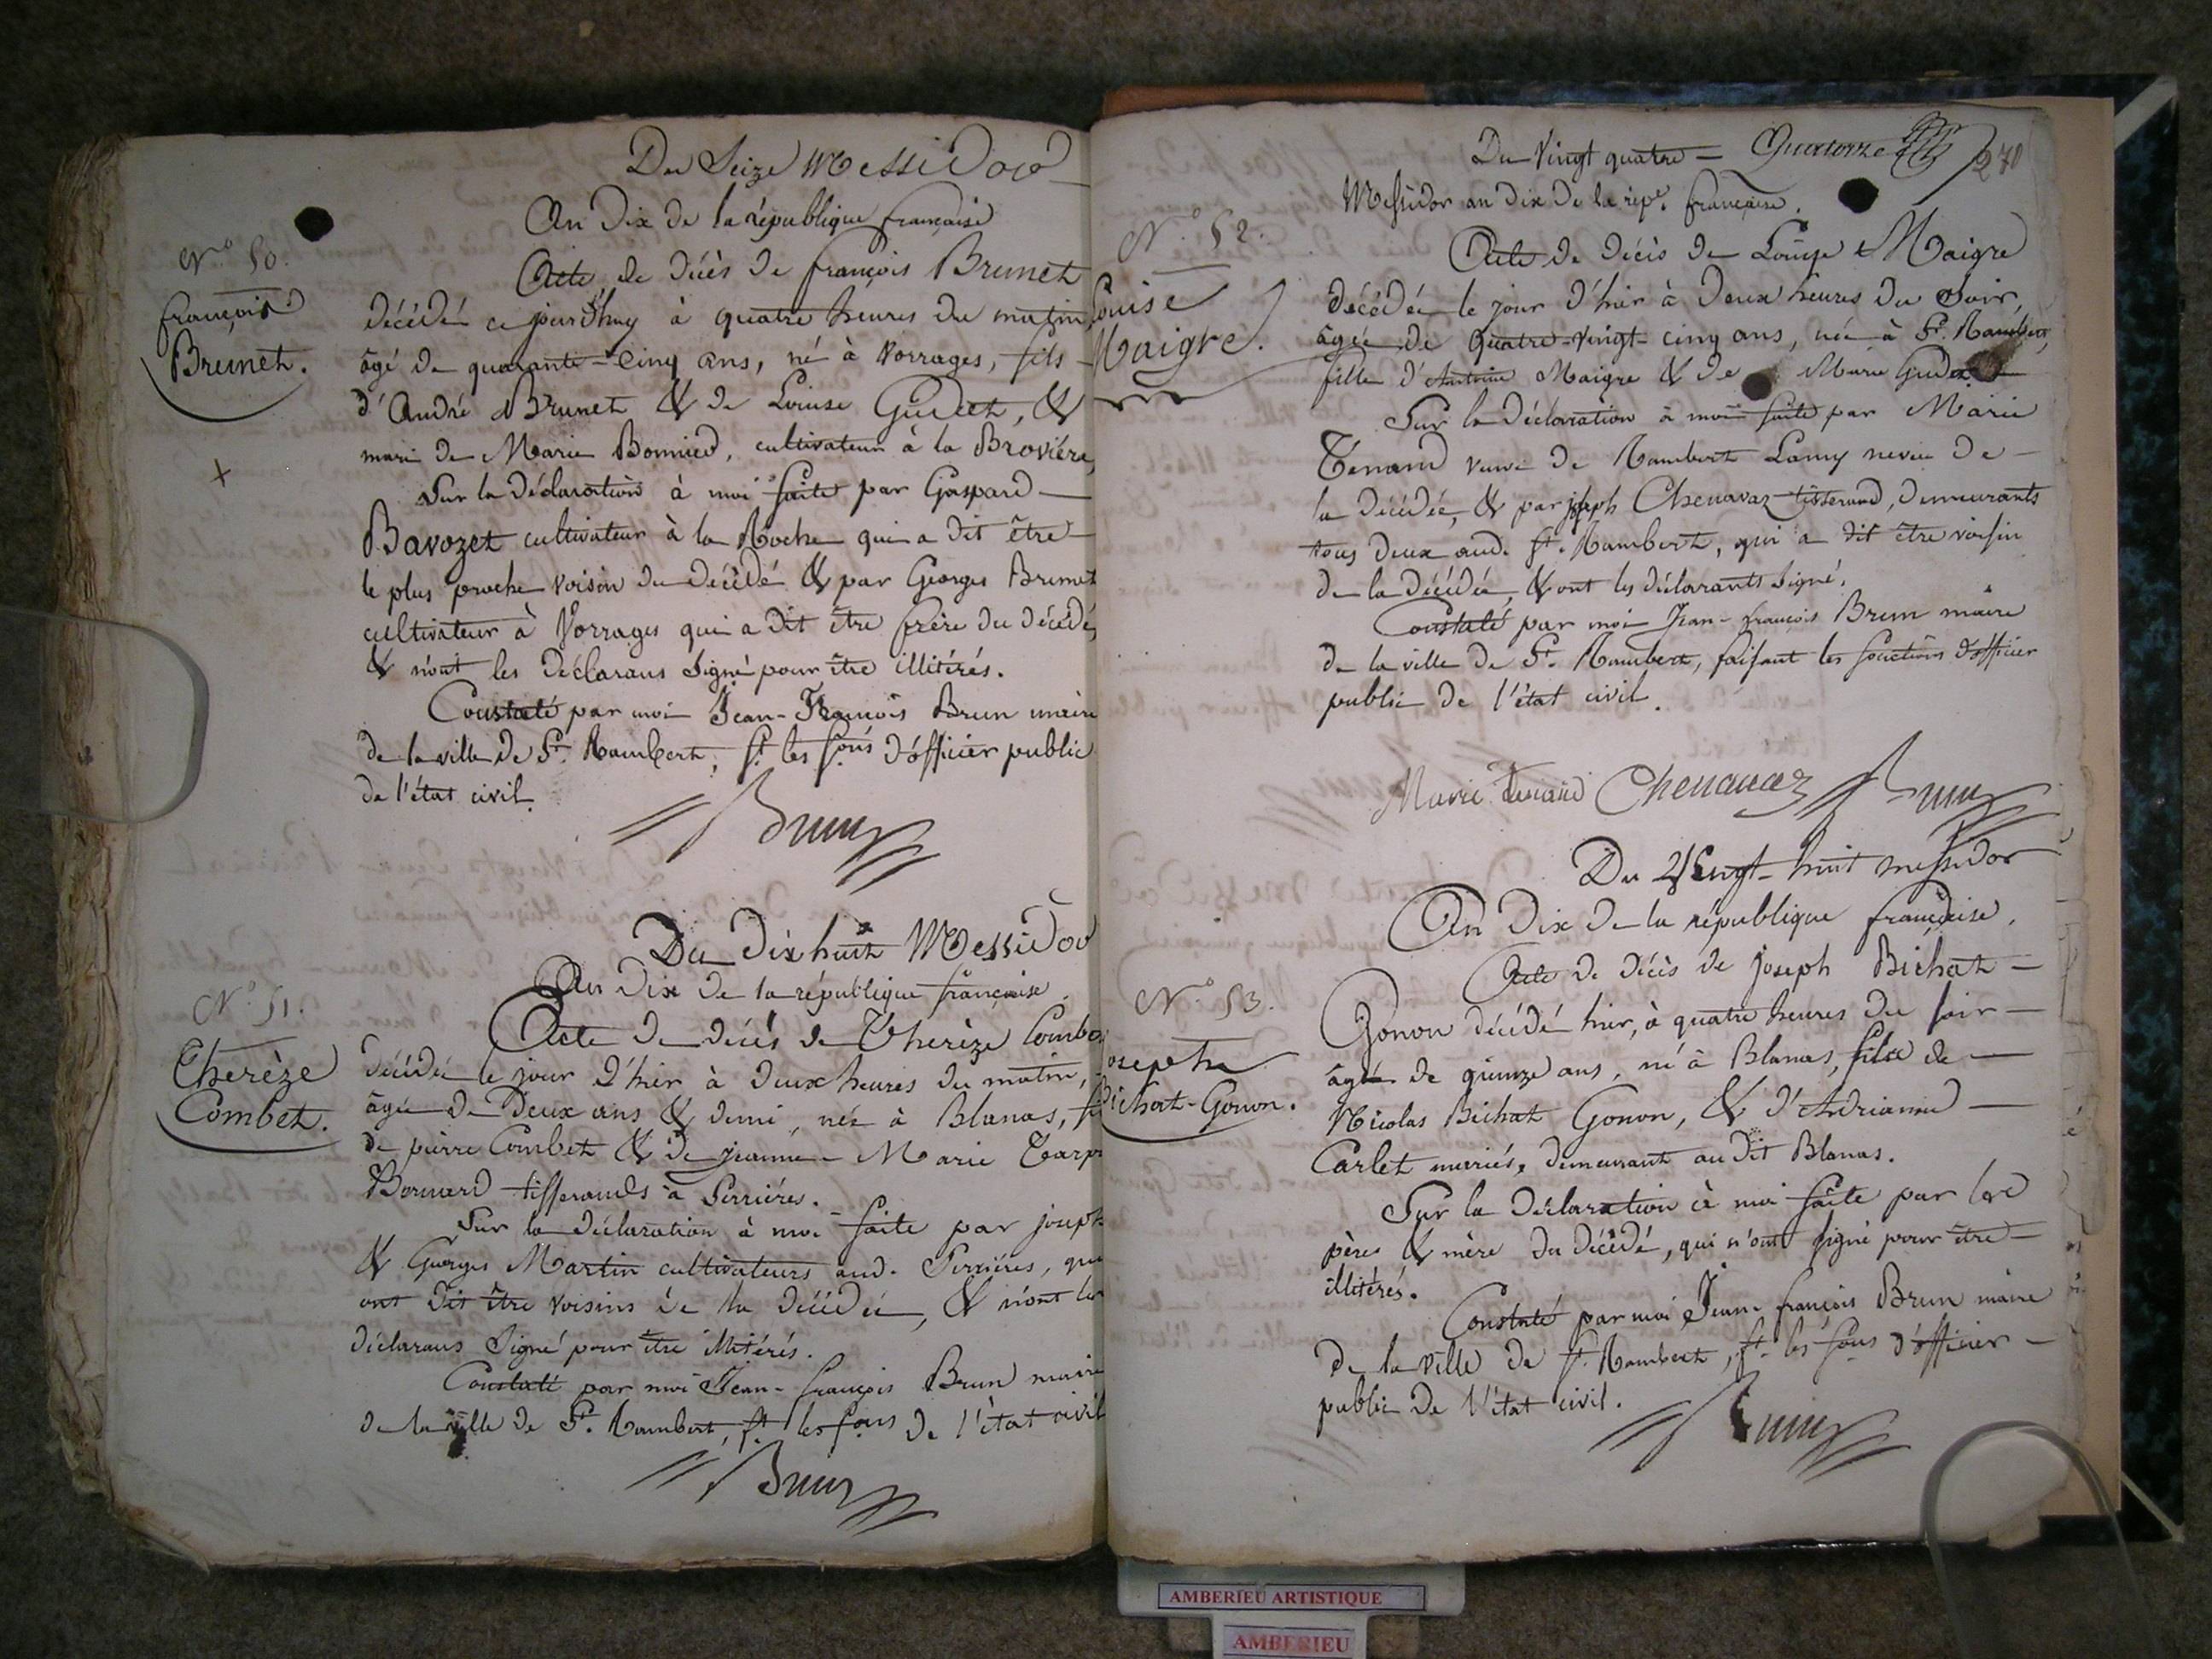 N.o 50.
françois
Brunet.
Du Seize Messidor
An Dix de la république française
Acte de décès de françois Brunet
décédé ce jourd'huy à quatre heures du matin
âgé de quarante-cinq ans, né à Vorrages, fils
d'André Brunet & de Louise Gudet, &
mari de Marie Bonnied, cultivateur à la Brovière,
Sur la déclaration à moi faite par Gaspard
Bavozet cultivateur à la Roche qui a dit être
le plus proche voisin du décédé & par Georges Brunet
cultivateur à Vorrages qui a dit être frère du décédé,
& n'ont les déclarans signé pour être illitérés.
Constaté par moi Jean-François Brun maire
de la ville de St. Rambert, ft. les fons d'officier public
de l'état civil.
Brun
N.o 51.
Therèze
Combet.
Du Dix huit Messidor
An Dix de la république française.
Acte de décès de Therèze Combet
décédée le jour d'hier à deux heures du matin,
âgée de deux ans & demi, née à Blanas,
de pierre Combet & de jeanne-Marie
Bornard tisserands à Serrières.
Sur la déclaration à moi faite par joseph
& Georges Martin cultivateurs aud. Serrières, qui
ont dit être voisins de la décédée, & n'ont les
déclarans signé pour être illitérés.
Constaté par moi Jean-françois Brun maire
de la ville de St. Rambert, ft. les fons de l'état civil
Brun
270
Du Vingt quatre - Quatorze
Messidor an dix de la rép.e française.
N.o 52.
Louise
Maigre.
Acte de décès de Louise Maigre
décédée le jour d'hier à deux heures du soir,
âgée de quatre-vingt-cinq ans, née à St. Rambert,
fille d'Antoine Maigre & de Marie
Sur la déclaration à moi faite par Marie
Tenand veuve de Rambert Lamy neveu de
la décédée, & par joseph Chenavaz tisserand, demeurants
tous deux aud. St. Rambert, qui a dit être voisin
de la décédée, & ont les déclarants signé.
Constaté par moi Jean-françois Brun maire
de la ville de St. Rambert, faisant les fonctions d'officier
public de l'état civil.
Marie tenand Chenavaz Brun
Du Vingt-huit messidor
An Dix de la république française.
N.o 53.
Joseph
Bichat-Gonon.
Acte de décès de joseph Bichat
Gonon décédé hier, à quatre heures du soir
âgé de quinze ans, né à Blanas, fils de
Nicolas Bichat Gonon, & d'Andrianne
Carlet mariés, demeurant au dit Blanas.
Sur la déclaration à moi faite par les
père & mère du décédé, qui n'ont signé pour être
illitérés.
Constaté par moi Jean-françois Brun maire
de la ville de St. Rambert, ft. les fons d'officier
public de l'état civil.
Brun
AMBERIEU ARTISTIQUE
AMBERIEU